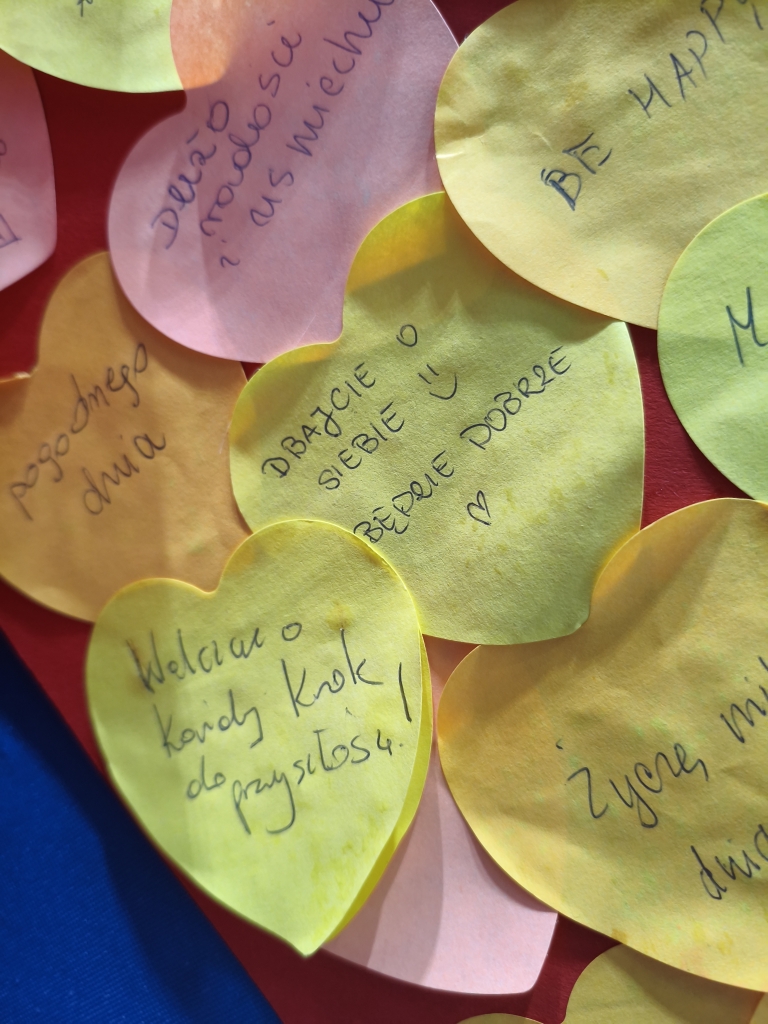 DUŻO
radości
i uśmiechu
BE HAPPY
M
pogodnego
dnia
DBAJCIE O
SIEBIE
BĘDZIE DOBRZE
Walczcie o
każdy krok
do przyszłości!
Życzę mił
dnia